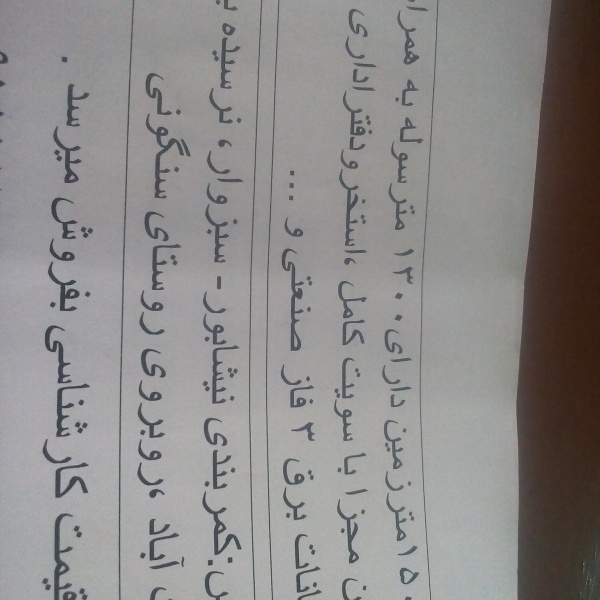 مترزمین دارای ۱۳۰۰ مترسوله به همراه
مجزا با سویت کامل ،استخر ودفتر اداری
برق ۳ فاز صنعتی و ...
کمربندی نیشابور- سبزوار، نرسیده
آباد ،روبروی روستای سنگونی
قیمت کارشناسی بفروش میرسد .